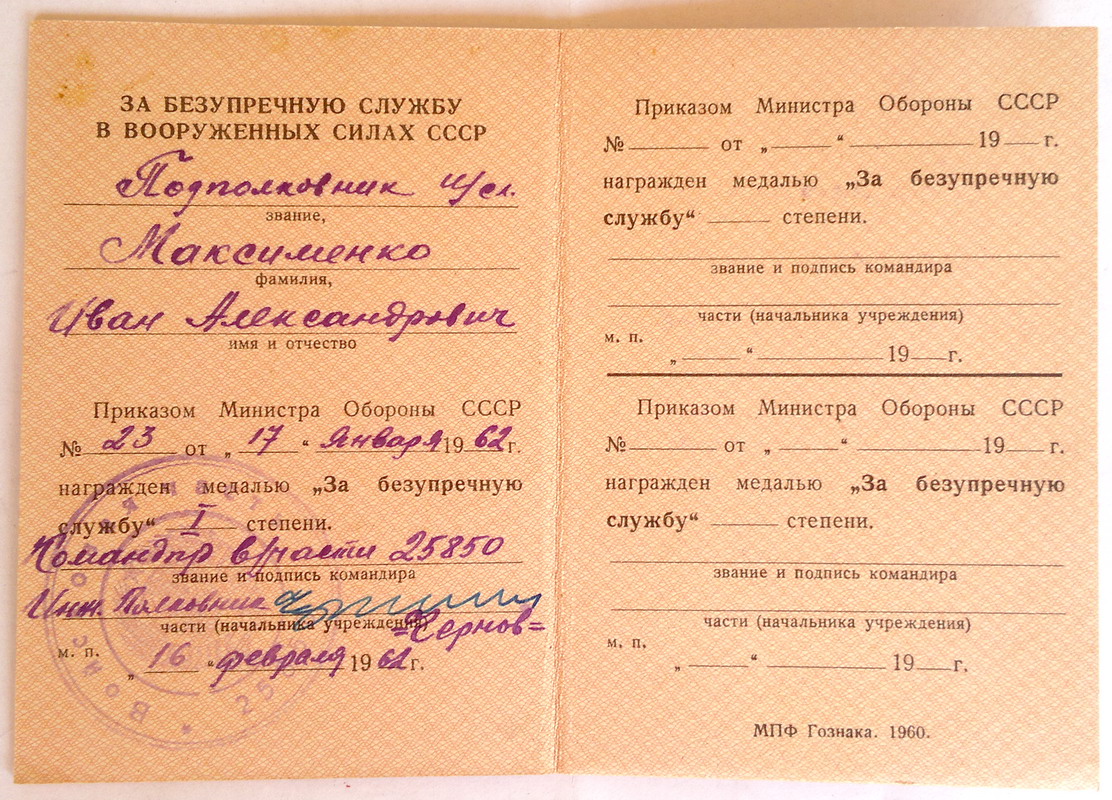 ЗА БЕЗУПРЕЧНУЮ СЛУЖБУ
В ВООРУЖЕННЫХ СИЛАХ СССР
Подполковник и/сл.
звание,
Максименко
фамилия,
Иван Александрович
имя и отчество
Приказом Министра Обороны СССР
№ 23 от „ 17 “ января 19 62 г.
награжден медалью „За безупречную
службу“ I степени.
Командир в/части 25850
звание и подпись командира
Инж. Полковник
части (начальника учреждения)
=Чернов=
м. п.
„ 16 “ февраля 19 62 г.
Приказом Министра Обороны СССР
№ от „ “ 19 г.
награжден медалью „За безупречную
службу“ степени.
звание и подпись командира
части (начальника учреждения)
м. п.
„ “ 19 г.
Приказом Министра Обороны СССР
№ от „ “ 19 г.
награжден медалью „За безупречную
службу“ степени.
звание и подпись командира
части (начальника учреждения)
м. п.
„ “ 19 г.
МПФ Гознака. 1960.